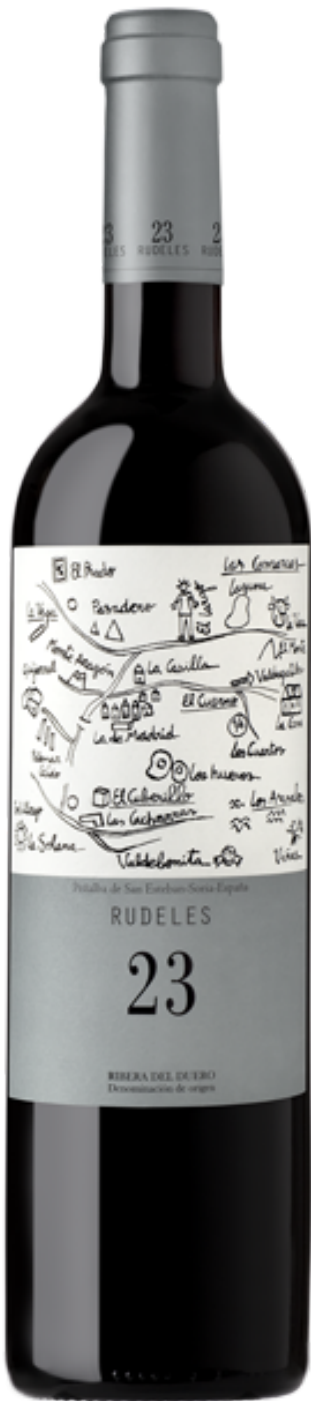 23
RUDELES
El Prado
Las Comarcas
Laguna
La Vega
Paradero
Monte Aragón
La Casilla
El Cuerno
La de Madrid
Los Cuartos
Los Hueros
El Caborillo
Las Cachorras
La Solana
Valdebonita
Viñas
Peñalba de San Esteban-Soria-España
RUDELES
23
RIBERA DEL DUERO
Denominación de origen